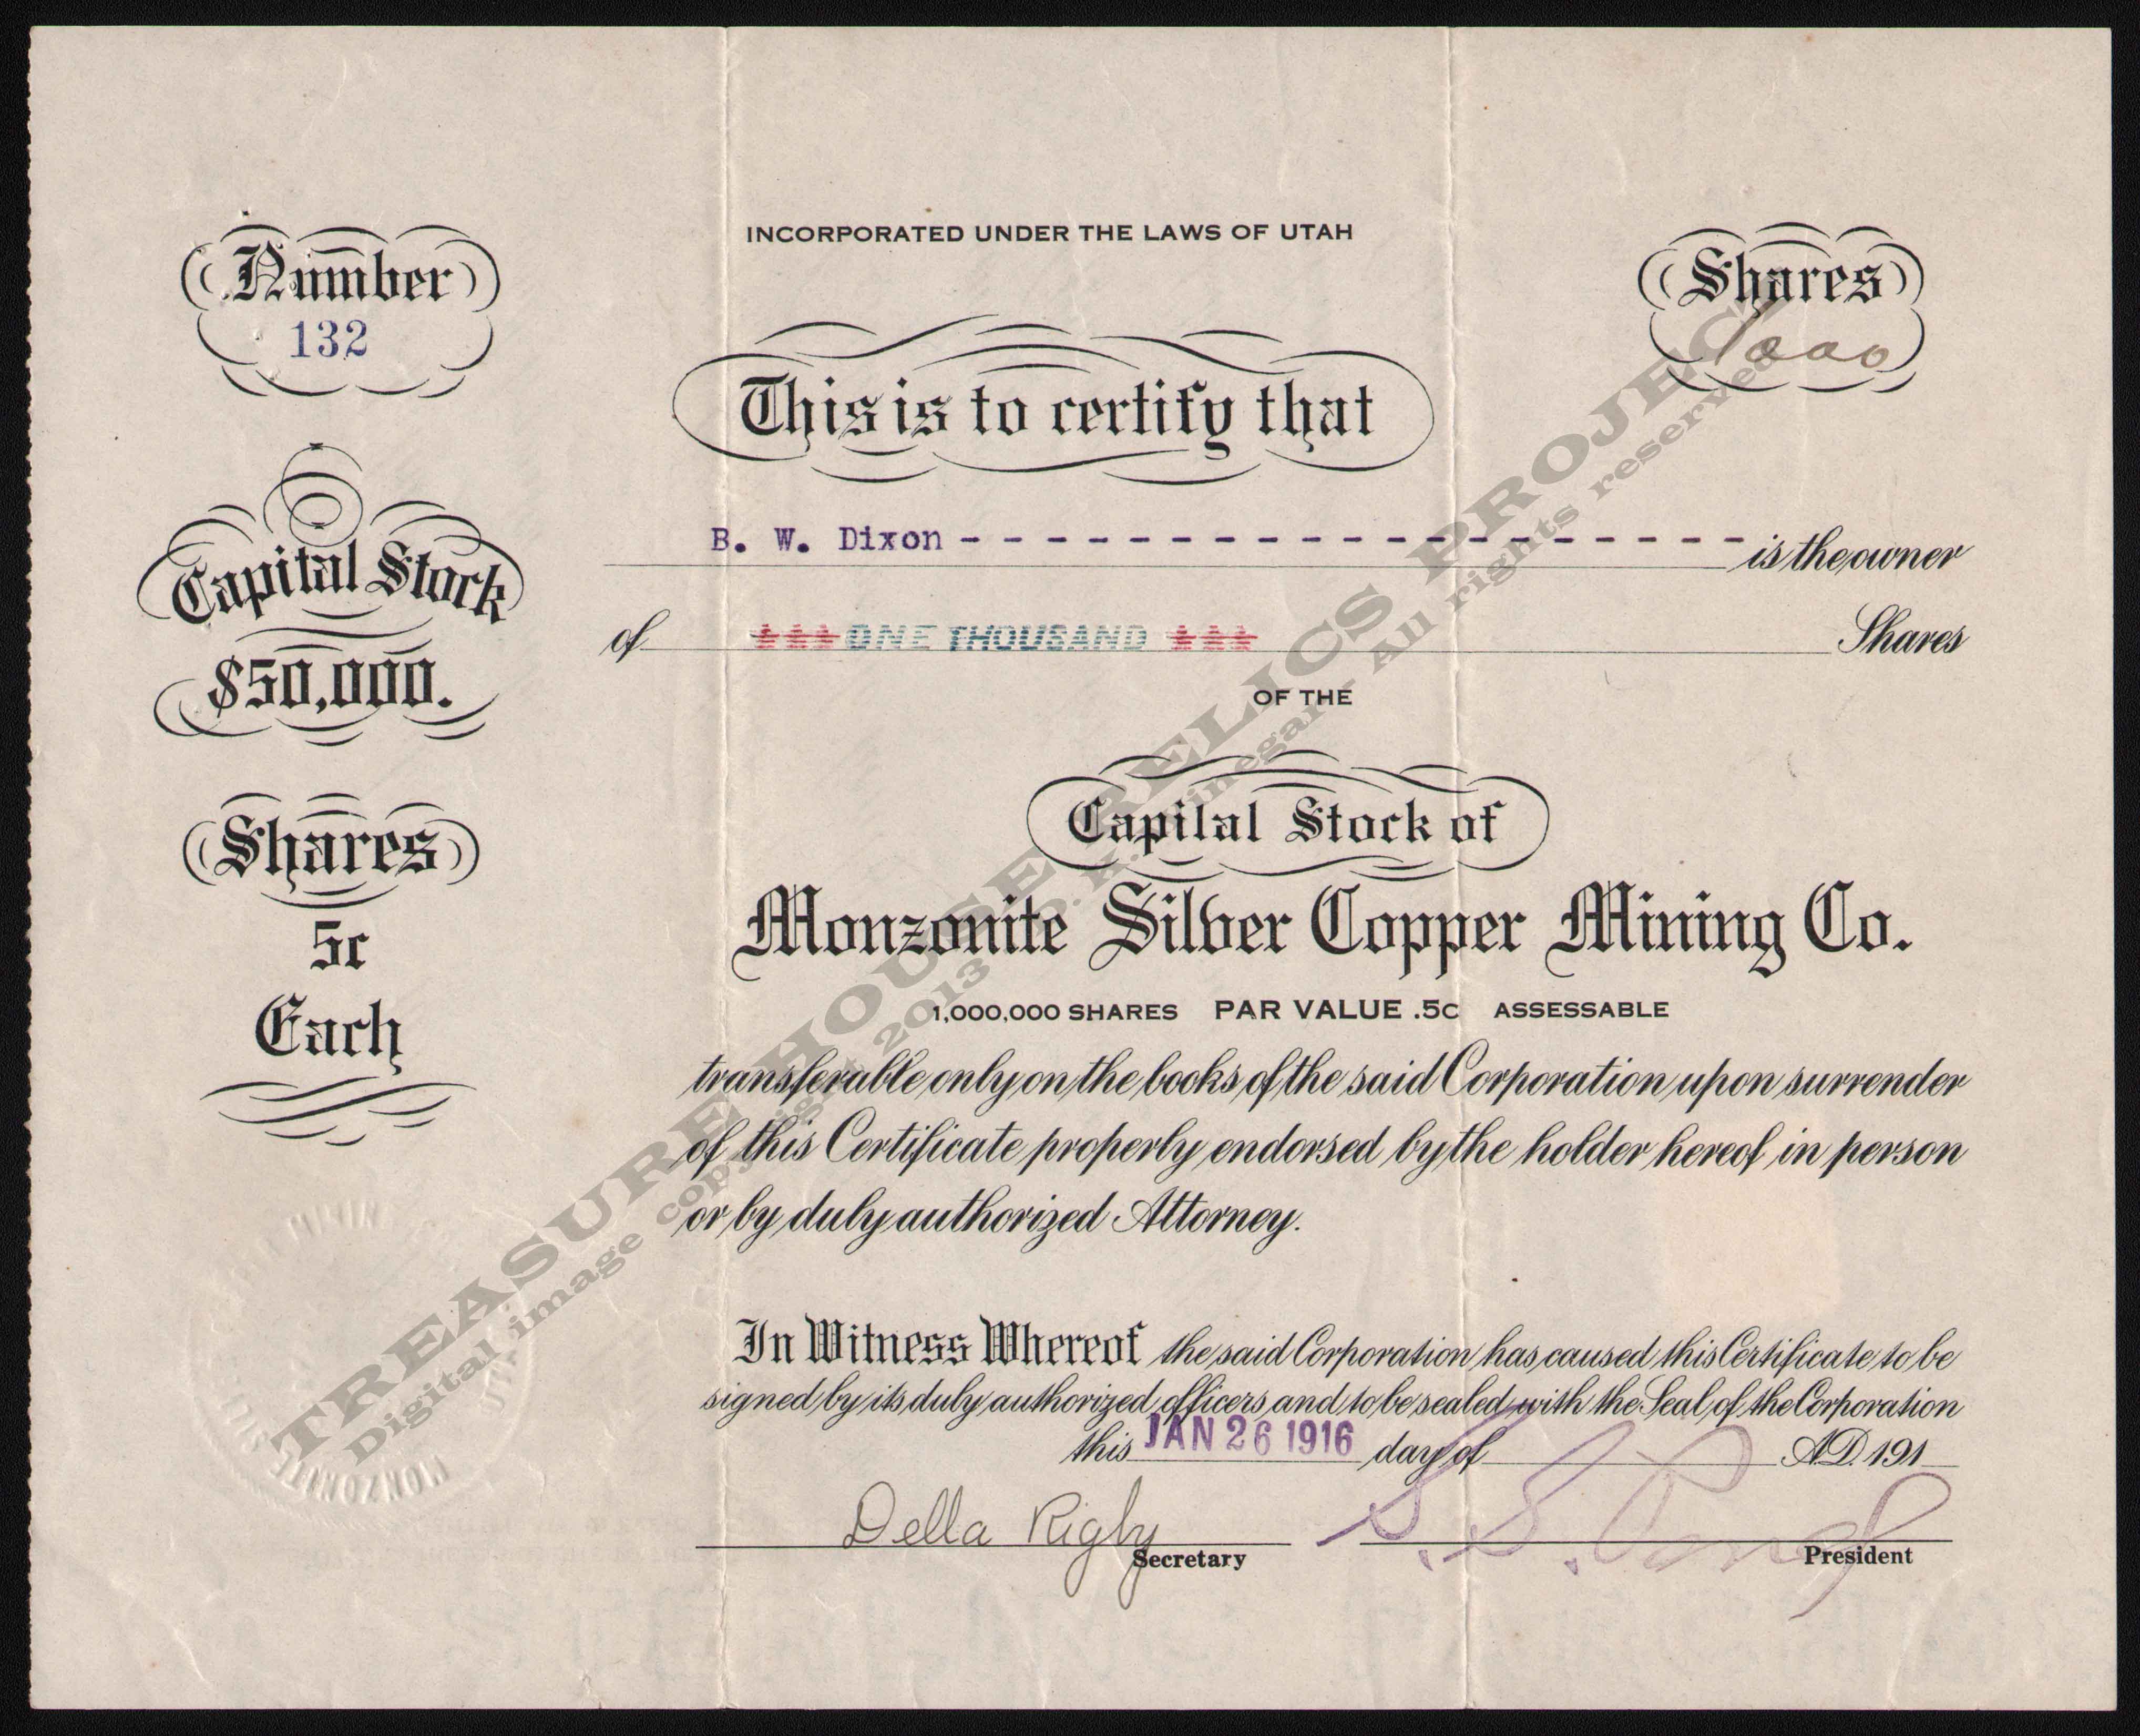 INCORPORATED UNDER THE LAWS OF UTAH
Number
132
Shares
1000
This is to certify that
B. W. Dixon - - - - - - - - - - - - - - - - - - - is the owner
of ONE THOUSAND Shares
OF THE
Capital Stock
$50,000.
Shares
5c
Each
Capital Stock of
Monzonite Silver Copper Mining Co.
1,000,000 SHARES PAR VALUE .5C ASSESSABLE
transferable only on the books of the said Corporation upon surrender
of this Certificate properly endorsed by the holder hereof in person
or by duly authorized Attorney.
In Witness Whereof the said Corporation has caused this Certificate to be
signed by its duly authorized officers and to be sealed with the Seal of the Corporation
this JAN 26 1916 day of A.D. 191
Della Rigby
Secretary
President
MONZONITE
TREASURE HOUSE RELICS PROJECT
Digital image copyright 2013 All rights reserved